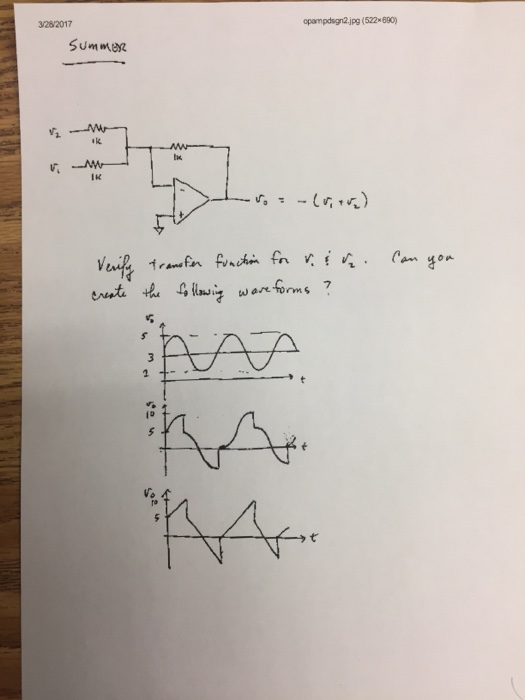 3/26/2017 opampdsgn2.jpg (522×690)
Summer
v₂ 1k
1k
v₁ 1K
- + v₀ = - (v₁ + v₂)
Verify transfer function for v₁ & v₂. Can you
create the following waveforms ?
v₀
5
3
1
t
v₀
10
5
t
v₀
10
5
t